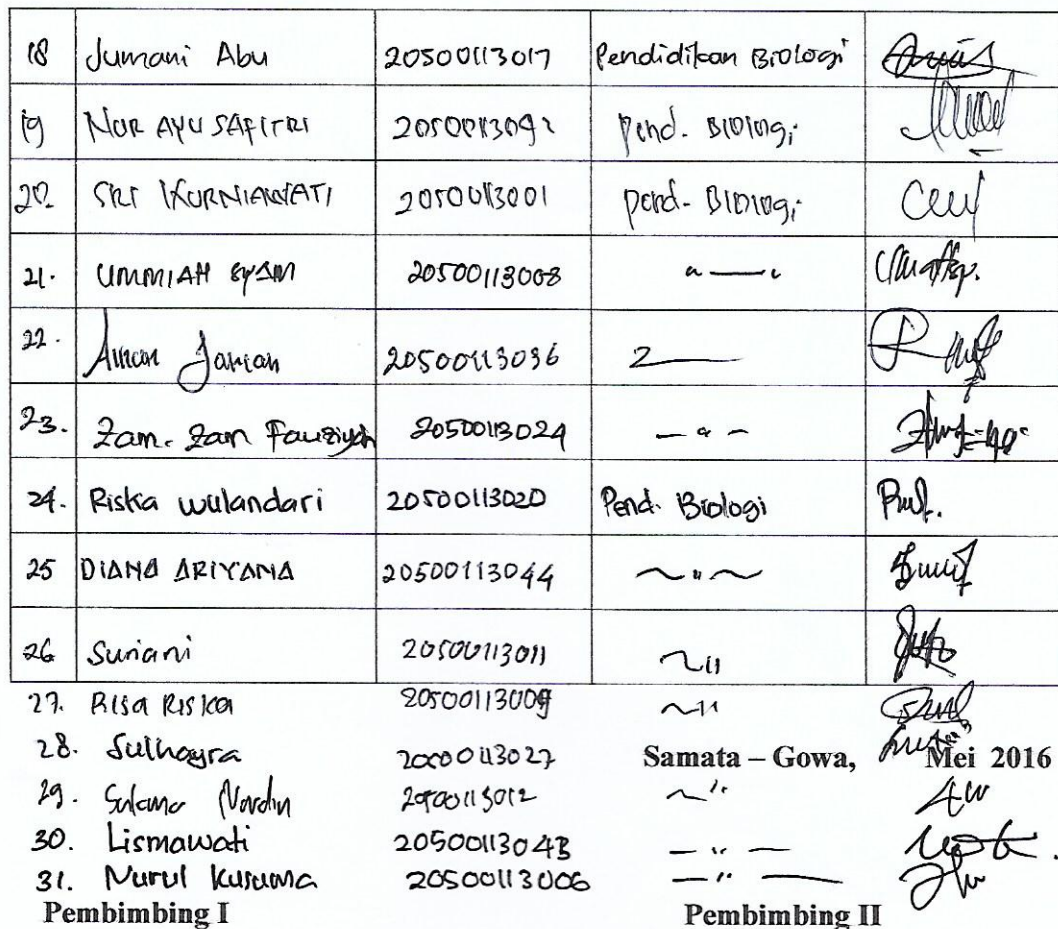 18 Jumani Abu 20500113017 Pendidikan Biologi
19 NUR AYU SAFITRI 20500113042 Pend. Biologi
20. SRI KURNIAWATI 20500113001 Pend. Biologi
21. UMMIAH SYAM 20500113008 — " —
22. 20500113036
23. Zam-Zam Fauziyah 20500113024 — " —
24. Riska wulandari 20500113020 Pend. Biologi
25 DIANA ARIYANA 20500113044 ~ " ~
26 Suriani 20500113011 ~ "
27. Risa Riska 20500113009 ~ "
28. Sulhayra 20500113027 Samata – Gowa, Mei 2016
29. Nurdin 20500113012 ~ "
30. Lismawati 20500113043 — " —
31. Nurul Kusuma 20500113006 — " —
Pembimbing I Pembimbing II